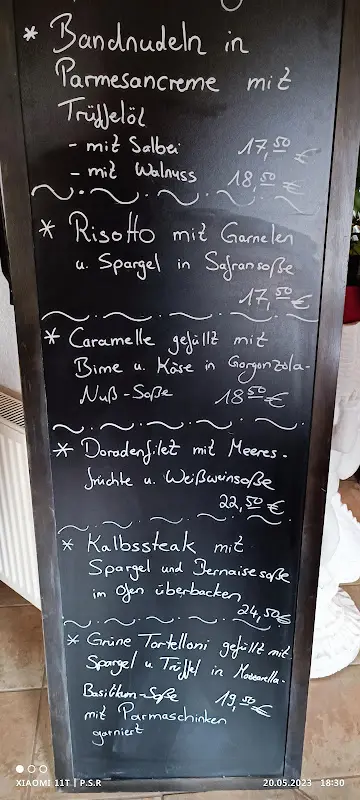 * Bandnudeln in
Parmesancreme mit
Trüffelöl
- mit Salbei 17,50 €
- mit Walnuss 18,50 €
* Risotto mit Garnelen
u. Spargel in Safransoße
17,50 €
* Caramelle gefüllt mit
Birne u. Käse in Gorgonzola-
Nuß-Soße 18,50 €
* Doradenfilet mit Meeres-
früchte u. Weißweinsoße
22,50 €
* Kalbssteak mit
Spargel und Bernaisesoße
im Ofen überbacken
24,50€
* Grüne Tortelloni gefüllt mit
Spargel u Trüffel in Mozzarella-
Basilikum-Soße 19,50 €
mit Parmaschinken
garniert
XIAOMI 11T | P.S.R 20.05.2023 18:30